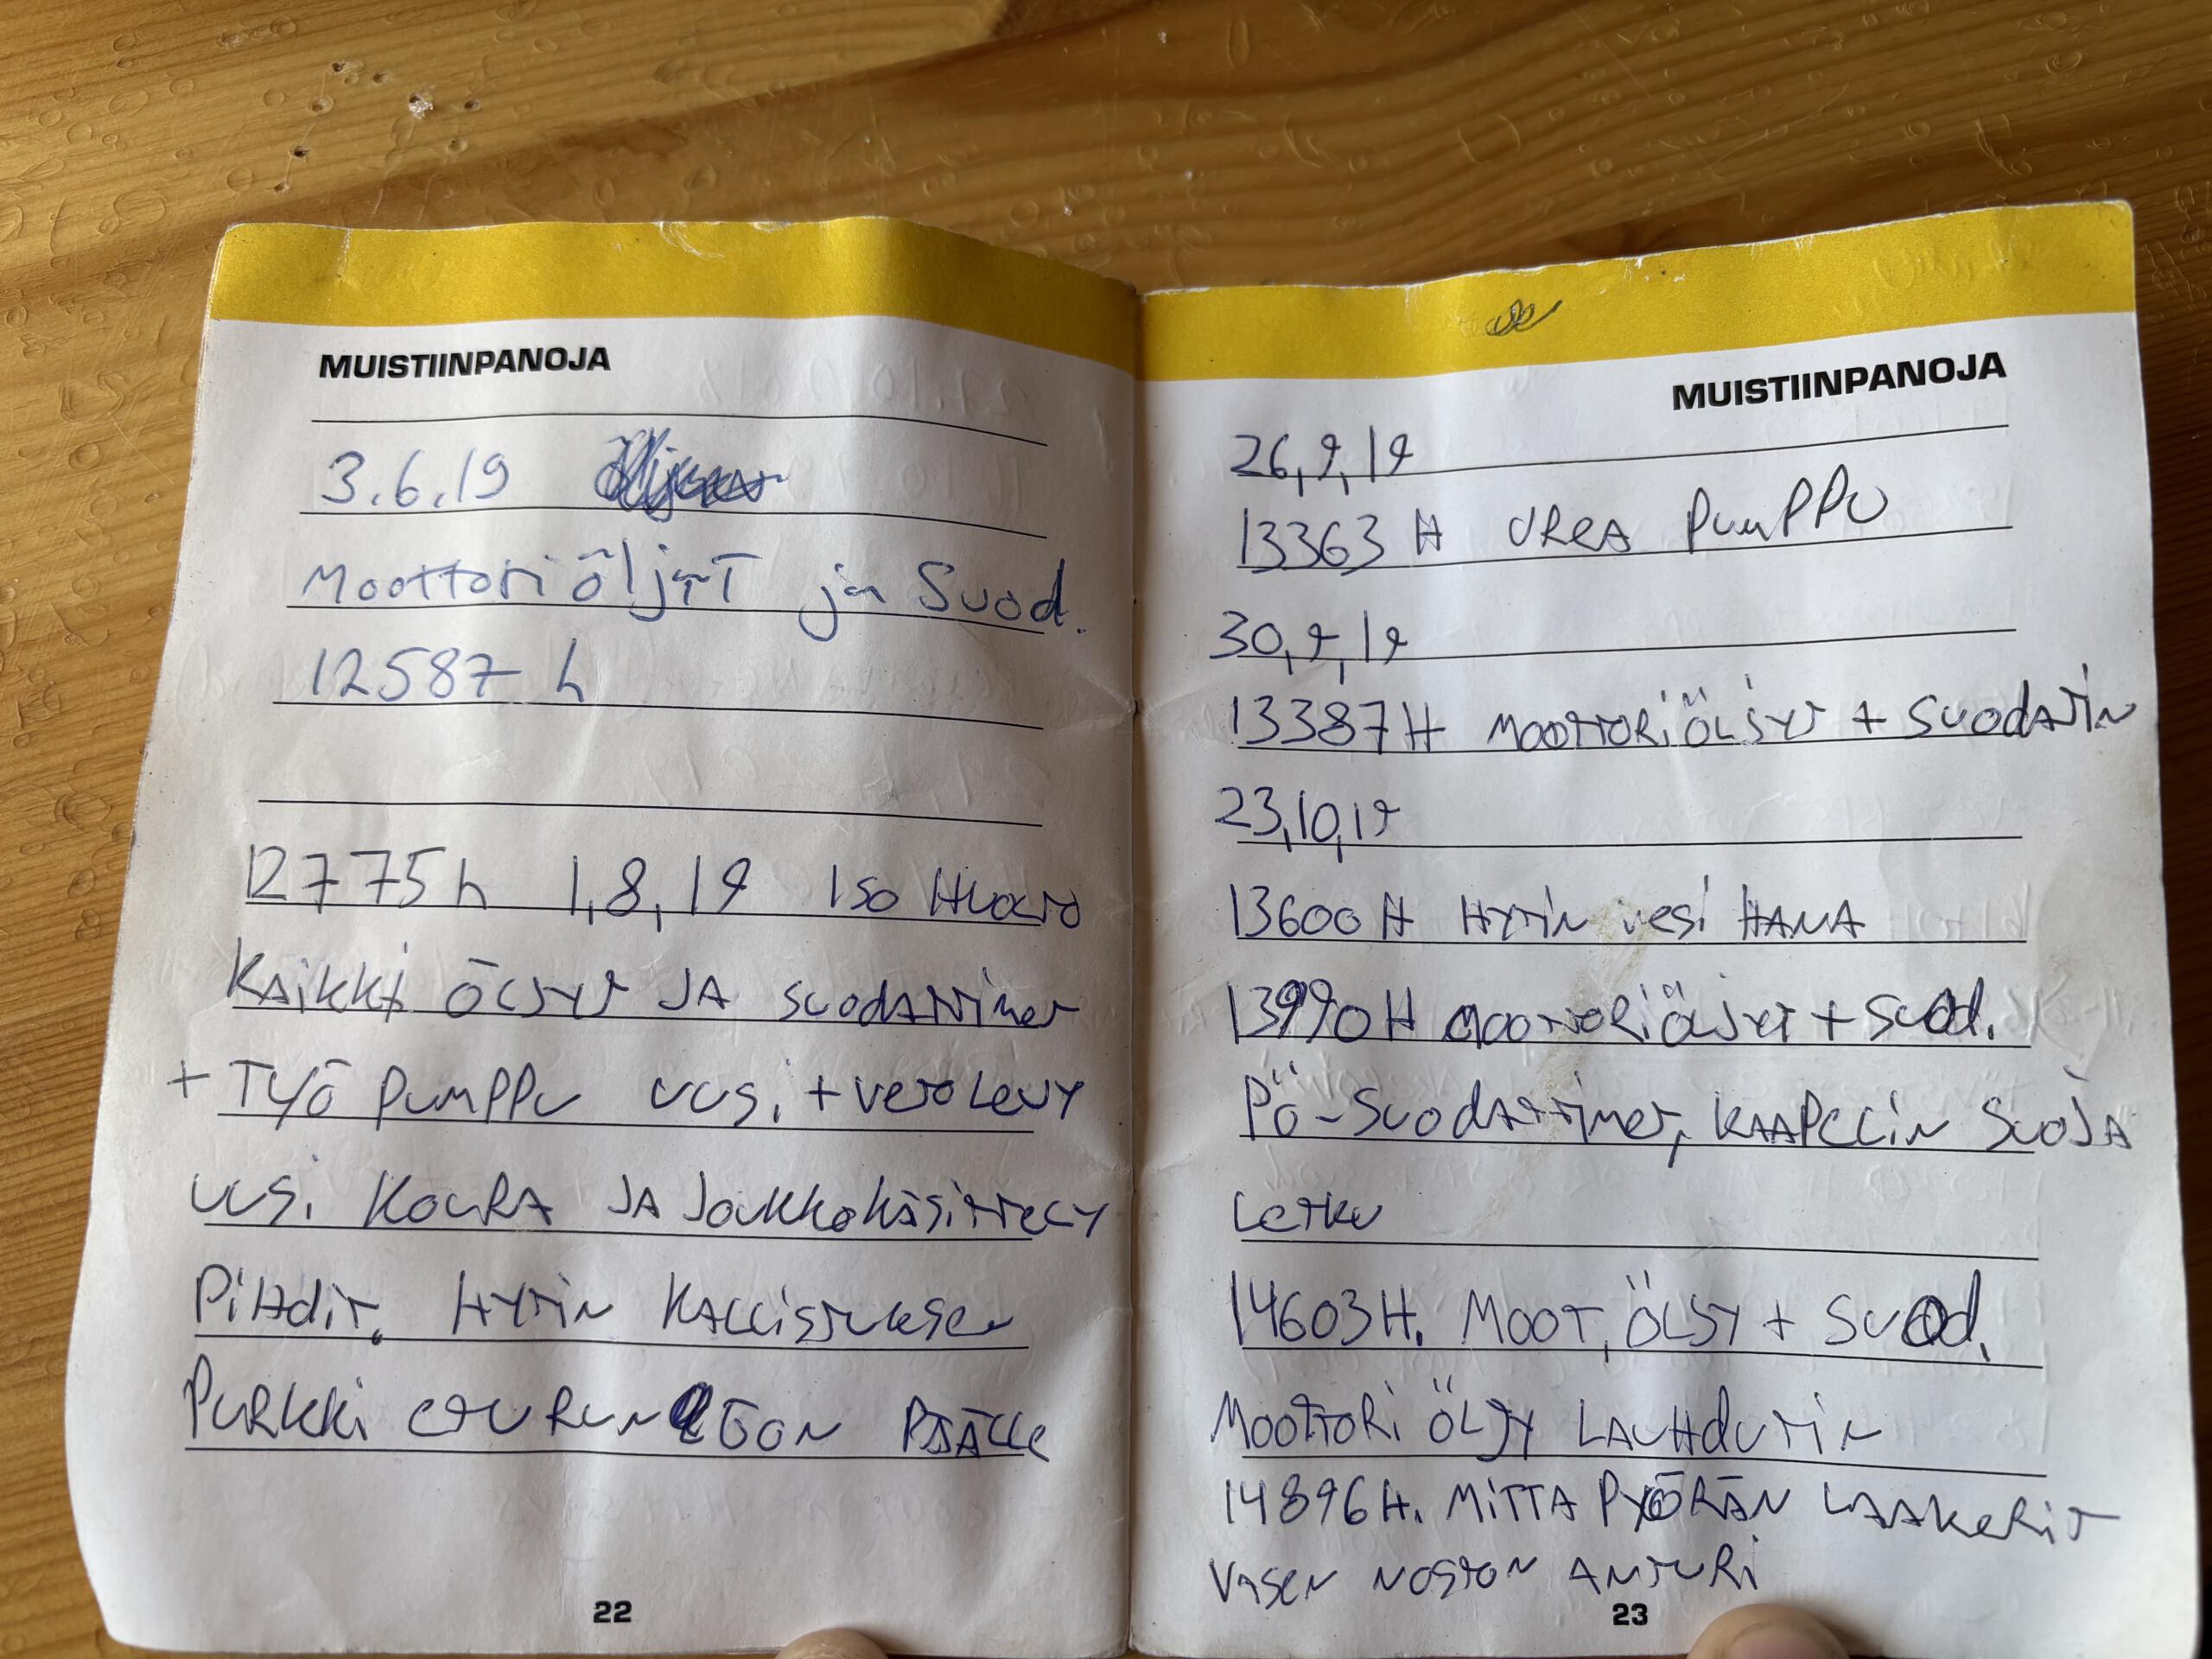 MUISTIINPANOJA
3.6.19
Moottoriöljyt ja Suod.
12587 h
12775h 1,8,19 ISO HUOLTO
KAIKKI ÖLJYT JA SUODATTIMET
+ TYÖ PUMPPU UUSI + VETOLEVY
UUSI KOURA JA JOUKKOKÄSITTELY
PIHDIT. HYTIN KALLISTUKSEN
PURKKI ETURUNGON PÄÄLLE
22
MUISTIINPANOJA
26,9,19
13363 H UREA PUMPPU
30,9,19
13387 H MOOTTORIÖLJYT + SUODATIN
23,10,19
13600 H HYTIN VESI HANA
13990 H MOOTTORIÖLJYT + SUOD.
PÖ-SUODATTIMET, KAAPELIN SUOJA
LETKU
14603 H. MOOT, ÖLJY + SUOD.
MOOTTORI ÖLJY LAUHDUTIN
14896 H. MITTA PYÖRÄN LAAKERIT
VASEN NOSTON ANTURI
23